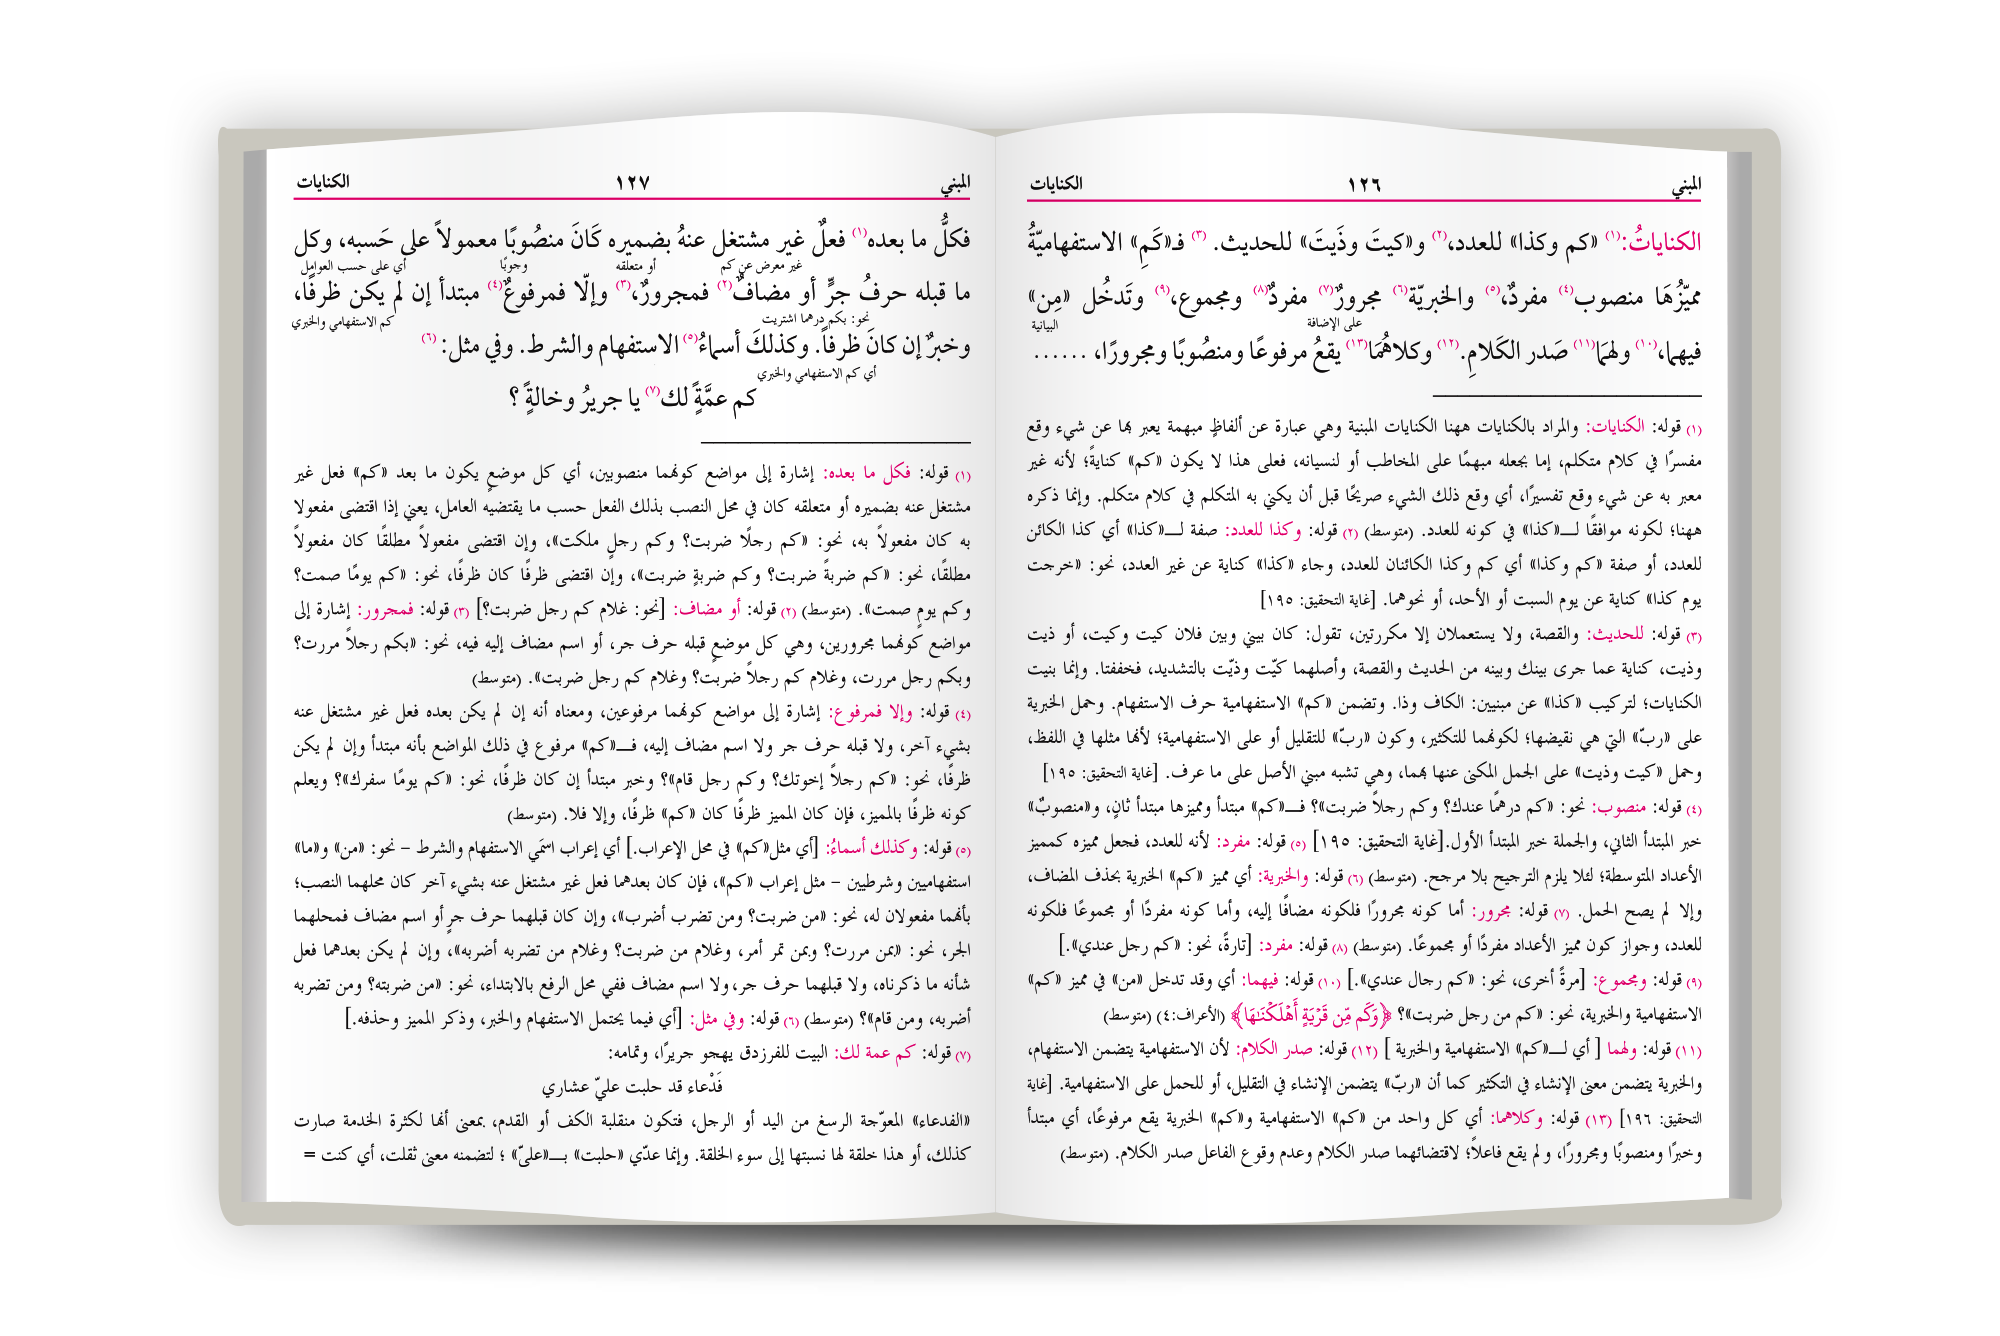 المبني ١٢٦ الكنايات
الكناياتُ:(١) «كم وكذا» للعدد،(٢) و«كيتَ وذَيتَ» للحديث. (٣) فـ«كَمِ» الاستفهاميّةُ
مميّزُهَا منصوب(٤) مفردٌ،(٥) والخبريّة(٦) مجرورٌ(٧) مفردٌ(٨) ومجموع،(٩) وتَدخُل «مِن»
على الإضافة البيانية
فيهما،(١٠) ولهَمَا(١١) صَدر الكَلامِ.(١٢) وكلاهُمَا(١٣) يقعُ مرفوعًا ومنصُوبًا ومجرورًا، ......
(١) قوله: الكنايات: والمراد بالكنايات ههنا الكنايات المبنية وهي عبارة عن ألفاظٍ مبهمة يعبر بها عن شيء وقع
مفسرًا في كلام متكلم، إما بجعله مبهمًا على المخاطب أو لنسيانه، فعلى هذا لا يكون «كم» كنايةً؛ لأنه غير
معبر به عن شيء وقع تفسيرًا، أي وقع ذلك الشيء صريحًا قبل أن يكني به المتكلم في كلام متكلم. وإنما ذكره
ههنا؛ لكونه موافقًا لــ«كذا» في كونه للعدد. (متوسط) (٢) قوله: وكذا للعدد: صفة لــ«كذا» أي كذا الكائن
للعدد، أو صفة «كم وكذا» أي كم وكذا الكائنان للعدد، وجاء «كذا» كناية عن غير العدد، نحو: «خرجت
يوم كذا» كناية عن يوم السبت أو الأحد، أو نحوهما. [غاية التحقيق: ١٩٥]
(٣) قوله: للحديث: والقصة، ولا يستعملان إلا مكررتين، تقول: كان بيني وبين فلان كيت وكيت، أو ذيت
وذيت، كناية عما جرى بينك وبينه من الحديث والقصة، وأصلهما كيّت وذيّت بالتشديد، فخففتا. وإنما بنيت
الكنايات؛ لتركيب «كذا» عن مبنيين: الكاف وذا. وتضمن «كم» الاستفهامية حرف الاستفهام. وحمل الخبرية
على «ربّ» التي هي نقيضها؛ لكونهما للتكثير، وكون «ربّ» للتقليل أو على الاستفهامية؛ لأنها مثلها في اللفظ،
وحمل «كيت وذيت» على الجمل المكنى عنها بهما، وهي تشبه مبني الأصل على ما عرف. [غاية التحقيق: ١٩٥]
(٤) قوله: منصوب: نحو: «كم درهمًا عندك؟ وكم رجلاً ضربت»؟ فــ«كم» مبتدأ ومميزها مبتدأ ثانٍ، و«منصوبٌ»
خبر المبتدأ الثاني، والجملة خبر المبتدأ الأول.[غاية التحقيق: ١٩٥] (٥) قوله: مفرد: لأنه للعدد، فجعل مميزه كمميز
الأعداد المتوسطة؛ لئلا يلزم الترجيح بلا مرجح. (متوسط) (٦) قوله: والخبرية: أي مميز «كم» الخبرية بحذف المضاف،
وإلا لم يصح الحمل. (٧) قوله: مجرور: أما كونه مجرورًا فلكونه مضافًا إليه، وأما كونه مفردًا أو مجموعًا فلكونه
للعدد، وجواز كون مميز الأعداد مفردًا أو مجموعًا. (متوسط) (٨) قوله: مفرد: [تارةً، نحو: «كم رجل عندي».]
(٩) قوله: ومجموع: [مرةً أخرى، نحو: «كم رجال عندي».] (١٠) قوله: فيهما: أي وقد تدخل «من» في مميز «كم»
الاستفهامية والخبرية، نحو: «كم من رجل ضربت»؟ ﴿وَكَم مِّن قَرۡيَةٍ أَهۡلَكۡنَٰهَا﴾ (الأعراف:٤) (متوسط)
(١١) قوله: ولهما [ أي لــ«كم» الاستفهامية والخبرية ] (١٢) قوله: صدر الكلام: لأن الاستفهامية يتضمن الاستفهام،
والخبرية يتضمن معنى الإنشاء في التكثير كما أن «ربّ» يتضمن الإنشاء في التقليل، أو للحمل على الاستفهامية. [غاية
التحقيق: ١٩٦] (١٣) قوله: وكلاهما: أي كل واحد من «كم» الاستفهامية و«كم» الخبرية يقع مرفوعًا، أي مبتدأ
وخبرًا ومنصوبًا ومجرورًا، ولم يقع فاعلاً؛ لاقتضائهما صدر الكلام وعدم وقوع الفاعل صدر الكلام. (متوسط)
المبني ١٢٧ الكنايات
فكلُّ ما بعده(١) فعلٌ غير مشتغل عنهُ بضميره كَانَ منصُوبًا معمولاً على حَسبه، وكل
غير معرض عن كم أو متعلقه وجوبًا أي على حسب العوامل
ما قبله حرفُ جرٍّ أو مضافٌ(٢) فمجرورٌ،(٣) وإلّا فمرفوعٌ(٤) مبتدأ إن لم يكن ظرفًا،
نحو: بكم درهما اشتريت كم الاستفهامي والخبري
وخبرٌ إن كانَ ظرفاً. وكذلكَ أسماءُ(٥) الاستفهام والشرط. وفي مثل: (٦)
أي كم الاستفهامي والخبري
كم عمَّةٍ لك(٧) يا جريرُ وخالةٍ ؟
(١) قوله: فكل ما بعده: إشارة إلى مواضع كونهما منصوبين، أي كل موضعٍ يكون ما بعد «كم» فعل غير
مشتغل عنه بضميره أو متعلقه كان في محل النصب بذلك الفعل حسب ما يقتضيه العامل، يعني إذا اقتضى مفعولا
به كان مفعولاً به، نحو: «كم رجلًا ضربت؟ وكم رجلٍ ملكت»، وإن اقتضى مفعولاً مطلقًا كان مفعولاً
مطلقًا، نحو: «كم ضربةً ضربت؟ وكم ضربةٍ ضربت»، وإن اقتضى ظرفًا كان ظرفًا، نحو: «كم يومًا صمت؟
وكم يومٍ صمت». (متوسط) (٢) قوله: أو مضاف: [نحو: غلام كم رجل ضربت؟] (٣) قوله: فمجرور: إشارة إلى
مواضع كونهما مجرورين، وهي كل موضعٍ قبله حرف جر، أو اسم مضاف إليه فيه، نحو: «بكم رجلاً مررت؟
وبكم رجل مررت، وغلام كم رجلاً ضربت؟ وغلام كم رجل ضربت». (متوسط)
(٤) قوله: وإلا فمرفوع: إشارة إلى مواضع كونهما مرفوعين، ومعناه أنه إن لم يكن بعده فعل غير مشتغل عنه
بشيء آخر، ولا قبله حرف جر ولا اسم مضاف إليه، فــ«كم» مرفوع في ذلك المواضع بأنه مبتدأ وإن لم يكن
ظرفًا، نحو: «كم رجلاً إخوتك؟ وكم رجل قام»؟ وخبر مبتدأ إن كان ظرفًا، نحو: «كم يومًا سفرك»؟ ويعلم
كونه ظرفًا بالمميز، فإن كان المميز ظرفًا كان «كم» ظرفًا، وإلا فلا. (متوسط)
(٥) قوله: وكذلك أسماءُ: [أي مثل«كم» في محل الإعراب.] أي إعراب اسمَي الاستفهام والشرط – نحو: «من» و«ما»
استفهاميين وشرطيين – مثل إعراب «كم»، فإن كان بعدهما فعل غير مشتغل عنه بشيء آخر كان محلهما النصب؛
بأنهما مفعولان له، نحو: «من ضربت؟ ومن تضرب أضرب»، وإن كان قبلهما حرف جرٍ أو اسم مضاف فمحلهما
الجر، نحو: «بمن مررت؟ وبمن تمر أمر، وغلام من ضربت؟ وغلام من تضربه أضربه»، وإن لم يكن بعدهما فعل
شأنه ما ذكرناه، ولا قبلهما حرف جر، ولا اسم مضاف ففي محل الرفع بالابتداء، نحو: «من ضربته؟ ومن تضربه
أضربه، ومن قام»؟ (متوسط) (٦) قوله: وفي مثل: [أي فيما يحتمل الاستفهام والخبر، وذكر المميز وحذفه.]
(٧) قوله: كم عمة لك: البيت للفرزدق يهجو جريرًا، وتمامه:
فَدْعاء قد حلبت عليّ عشاري
«الفدعاء» المعوّجة الرسغ من اليد أو الرجل، فتكون منقلبة الكف أو القدم، بمعنى أنها لكثرة الخدمة صارت
كذلك، أو هذا خلقة لها نسبتها إلى سوء الخلقة. وإنما عدّي «حلبت» بــ«عليّ» ؛ لتضمنه معنى ثقلت، أي كنت =